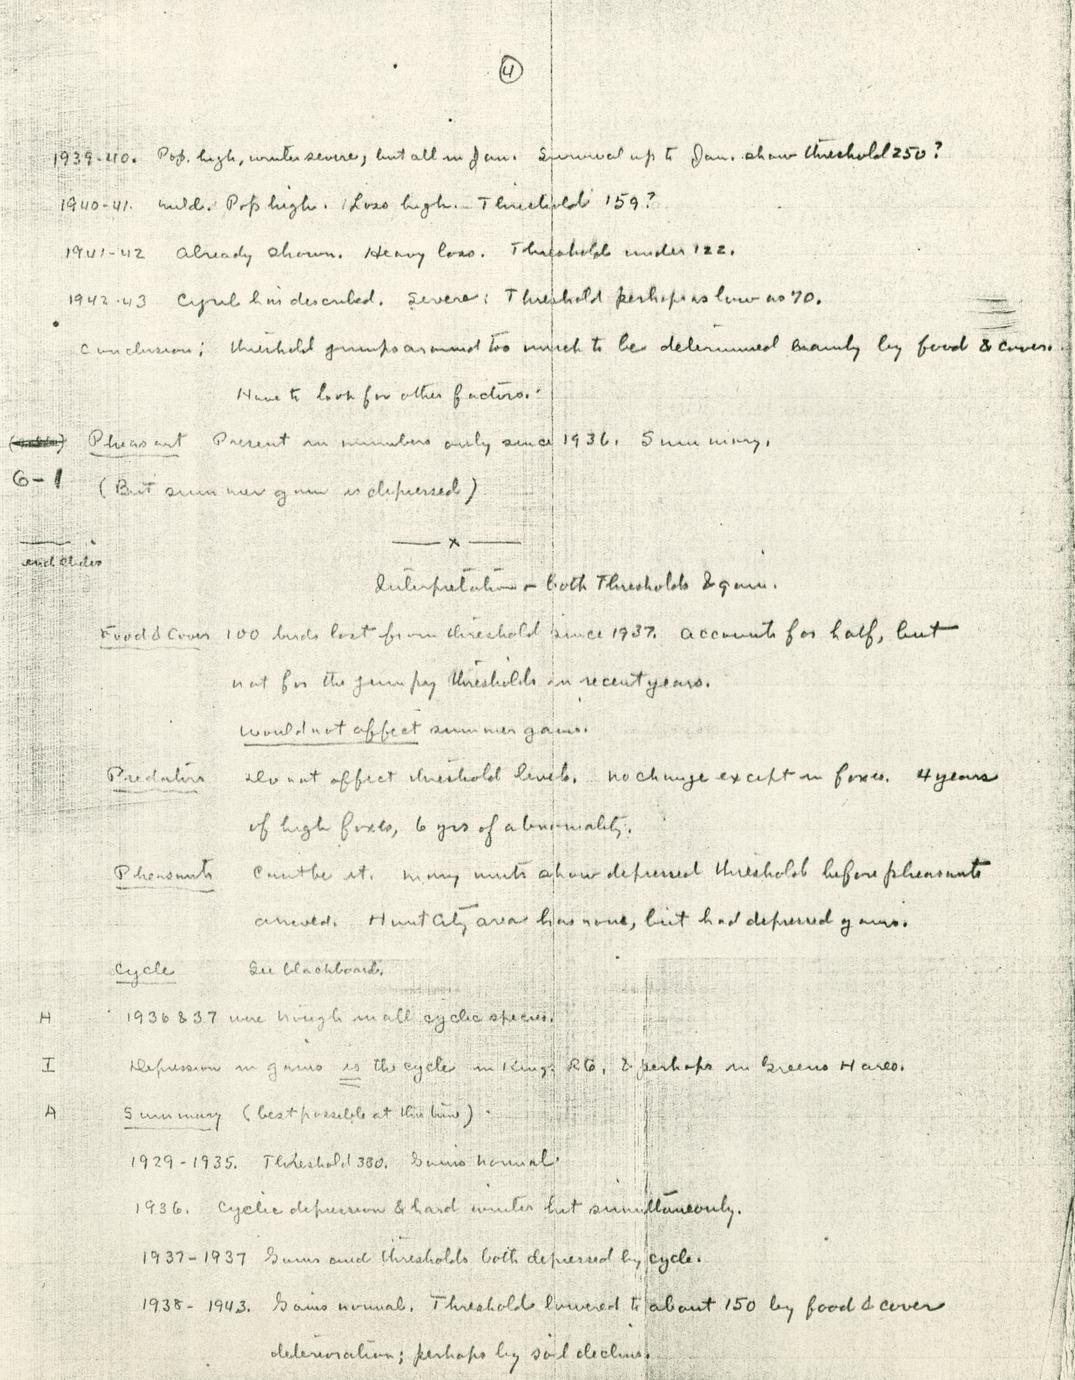 4
1939-40. Pop. high, winter severe, but all in Jan. Survival up to Jan. show threshold 250?
1940-41. mild. Pop high. Loss high. Threshold 159?
1941-42 Already shown. Heavy loss. Threshold under 122.
1942-43 Cyril has described. Severe: Threshold perhaps as low as 70.
Conclusion; threshold jumps around too much to be determined mainly by food & cover.
Have to look for other factors.
Pheasant Present in numbers only since 1936. Summary.
6-1 (But summer gain is depressed)
— x —
end slides
Interpretation - both Thresholds & gain.
Food & Cover 100 birds lost from threshold since 1937. Accounts for half, but
not for the jumpy thresholds in recent years.
Would not affect summer gains.
Predators Do not affect threshold levels. No change except in foxes. 4 years
of high foxes, 6 yrs of abnormality.
Pheasants Cant be it. Many units show depressed thresholds before pheasants
arrived. Hunt City area has none, but had depressed gains.
Cycle See blackboard.
H 1936 & 37 were trough in all cyclic species.
I Depression in gains is the cycle in Kings Rtg, & perhaps in Greens Hares.
A Summary (best possible at this time).
1929-1935. Threshold 380. Gains normal
1936. Cyclic depression & hard winter hit simultaneously.
1937-1937 Gains and thresholds both depressed by cycle.
1938-1943. Gains normal. Threshold lowered to about 150 by food & cover
deterioration; perhaps by soil decline.